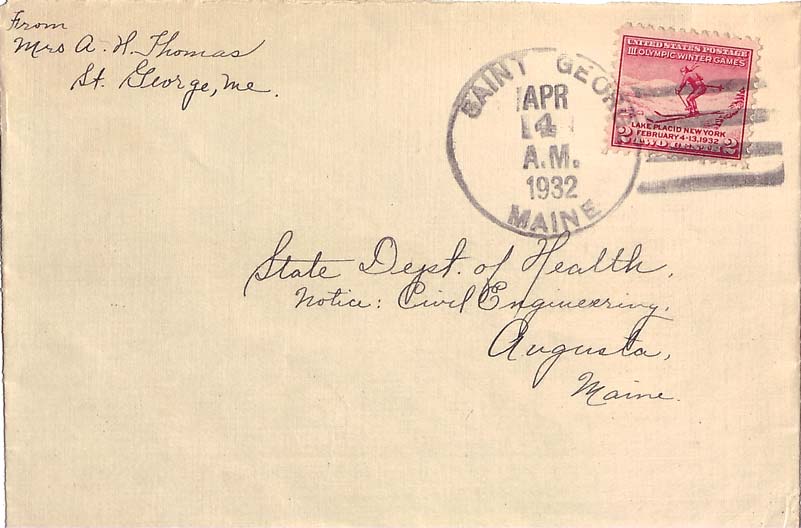 From
Mrs A. H. Thomas
St. George, Me.
SAINT GEORGE
APR
4
A.M.
1932
MAINE
UNITED STATES POSTAGE
III OLYMPIC WINTER GAMES
LAKE PLACID NEW YORK
FEBRUARY 4-13, 1932
2 TWO CENTS 2
State Dept. of Health,
Notice: Civil Engineering,
Augusta,
Maine.